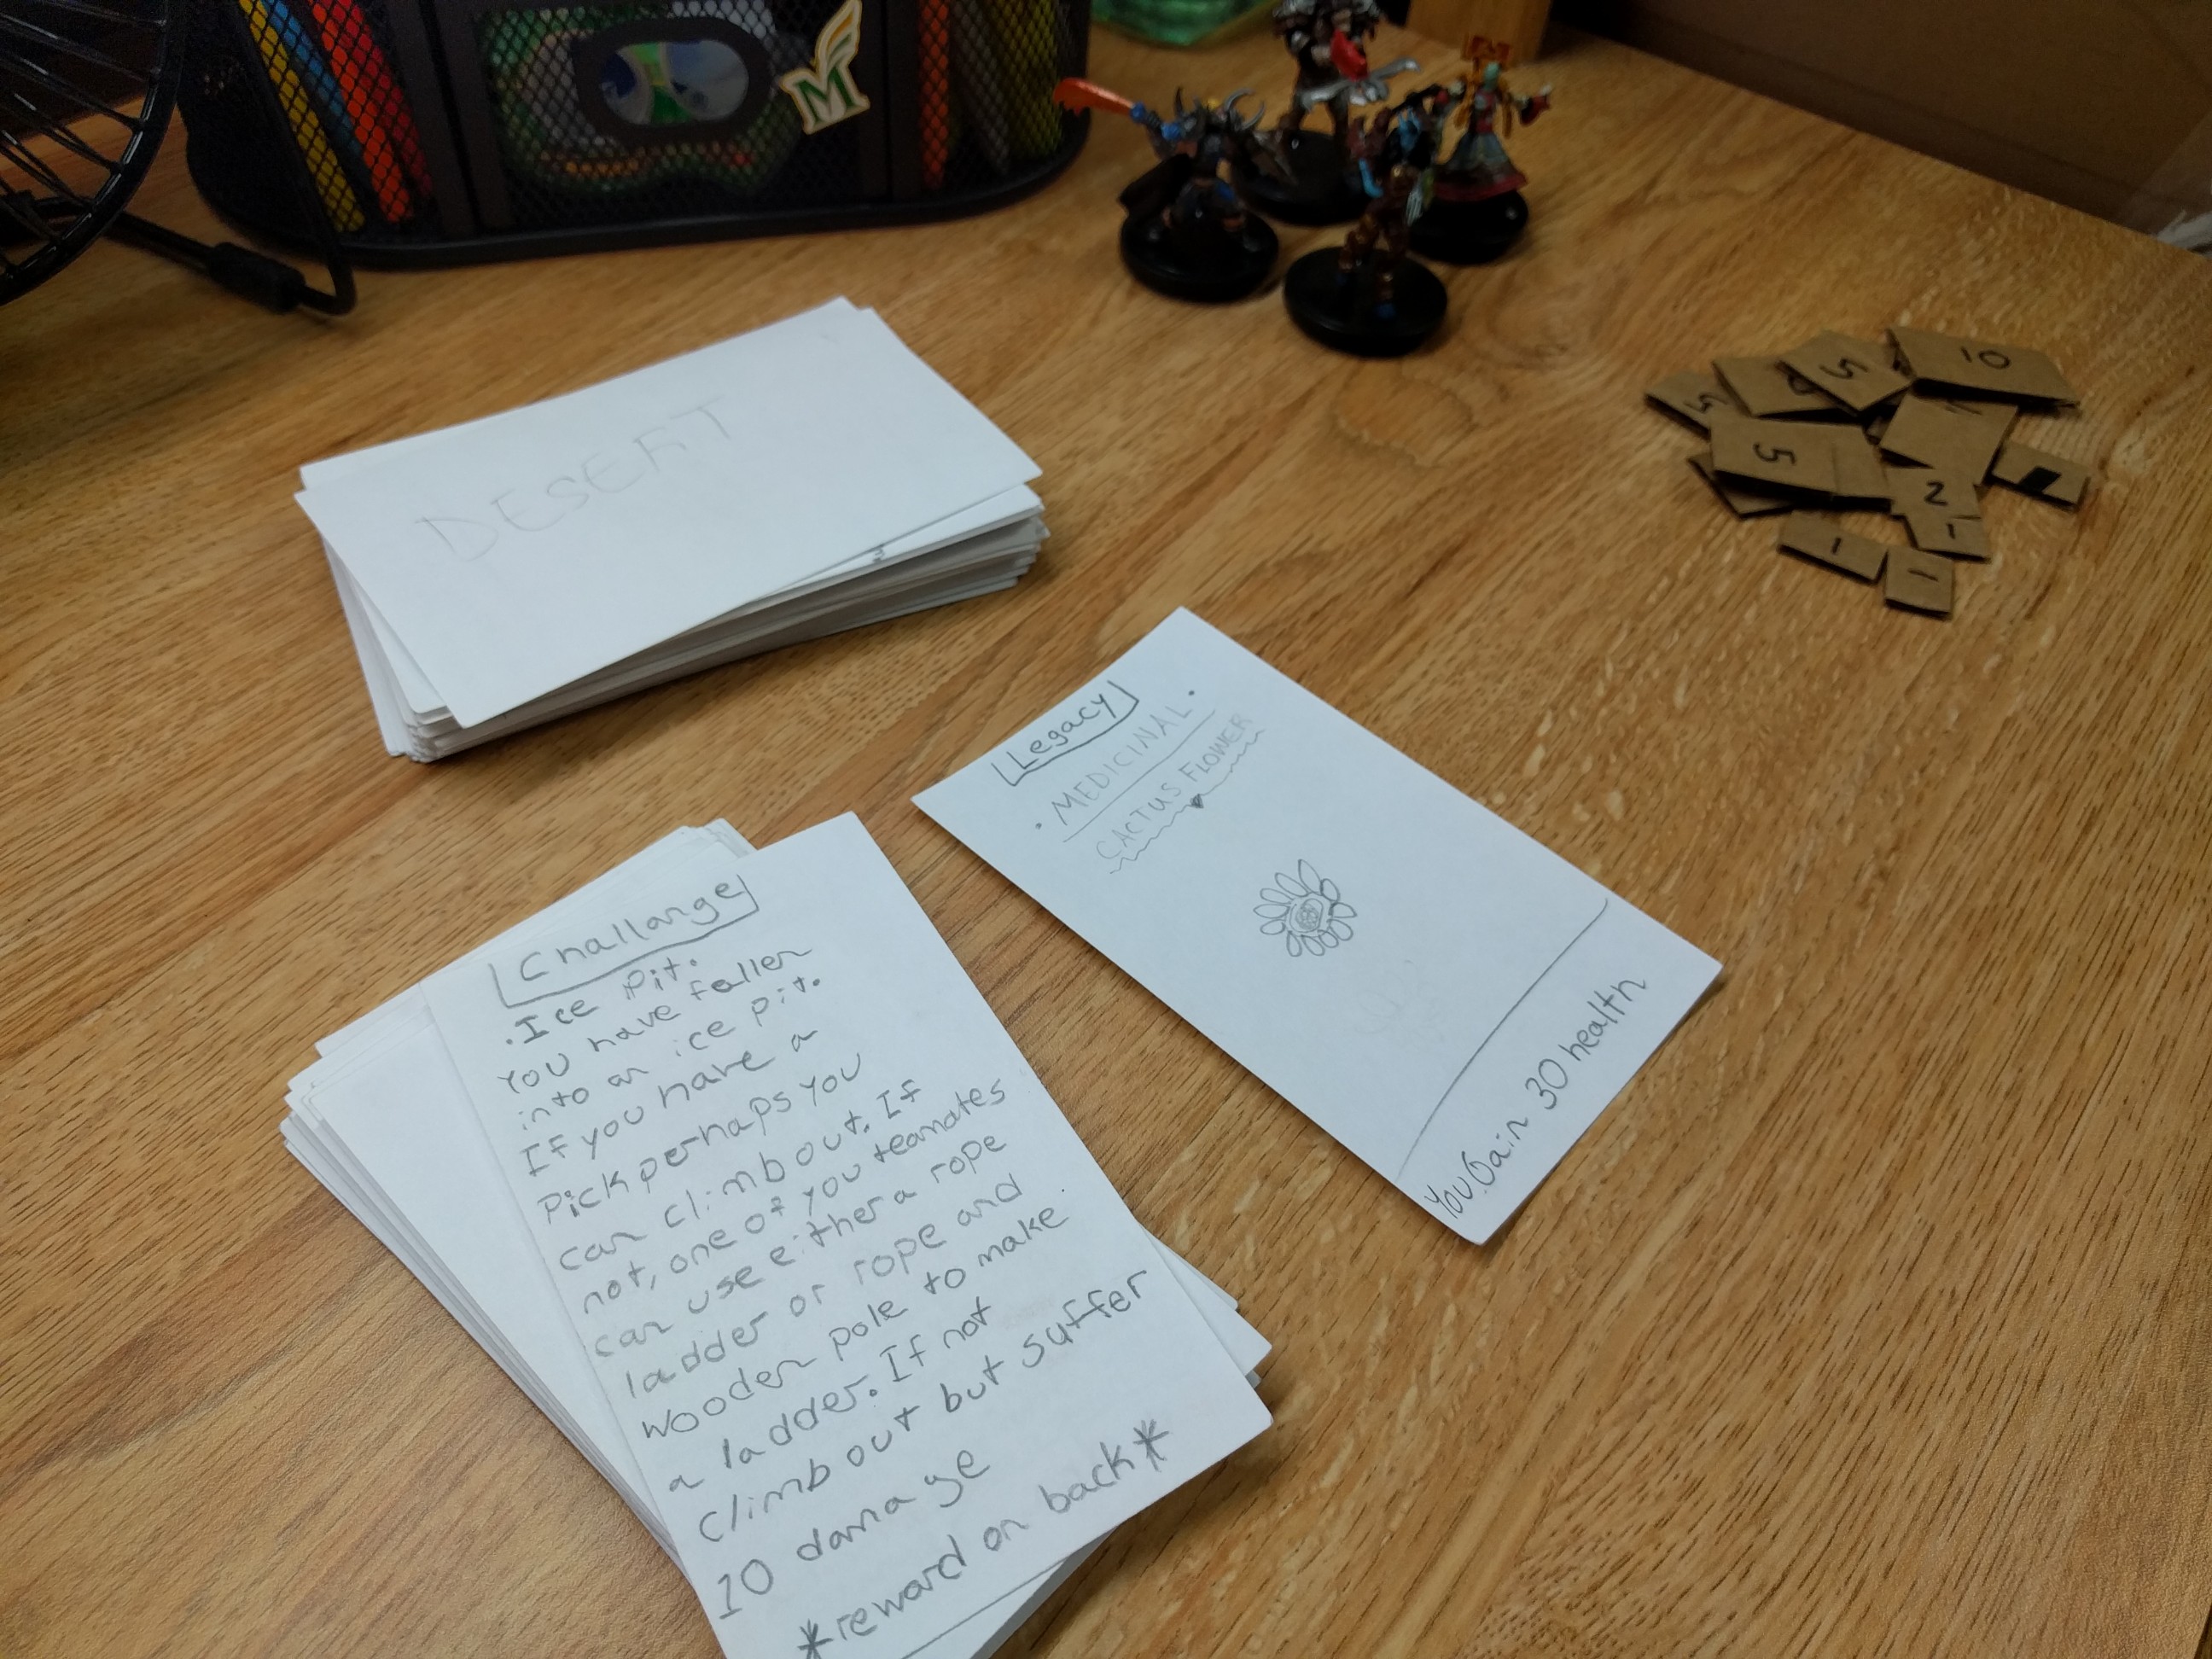 M
DESERT
10
5
5
5
2
1
1
1
Legacy
. MEDICINAL .
CACTUS FLOWER
You Gain 30 health
Challange
.Ice Pit.
You have fallen
into an ice pit.
If you have a
Pick perhaps you
can climb out. If
not, one of you teamates
can use either a rope
ladder or rope and
wooden pole to make
a ladder. If not
climb out but suffer
10 damage
*reward on back*